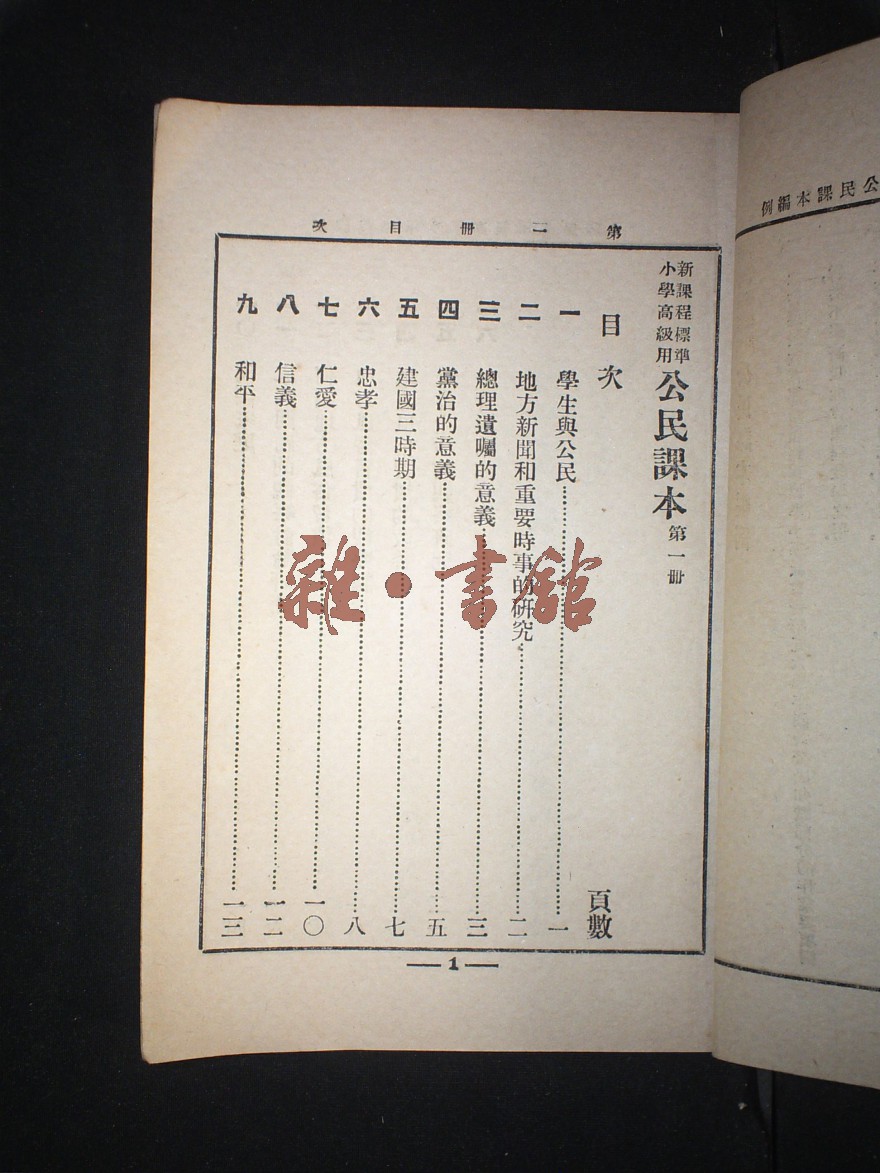 第二冊目次
新課程標準
小學高級用
公民課本 第一冊
目次 頁數
一 學生與公民 一
二 地方新聞和重要時事的研究 二
三 總理遺囑的意義 三
四 黨治的意義 五
五 建國三時期 七
六 忠孝 八
七 仁愛 一〇
八 信義 一二
九 和平 一三
1
公民課本編例
雜·書館